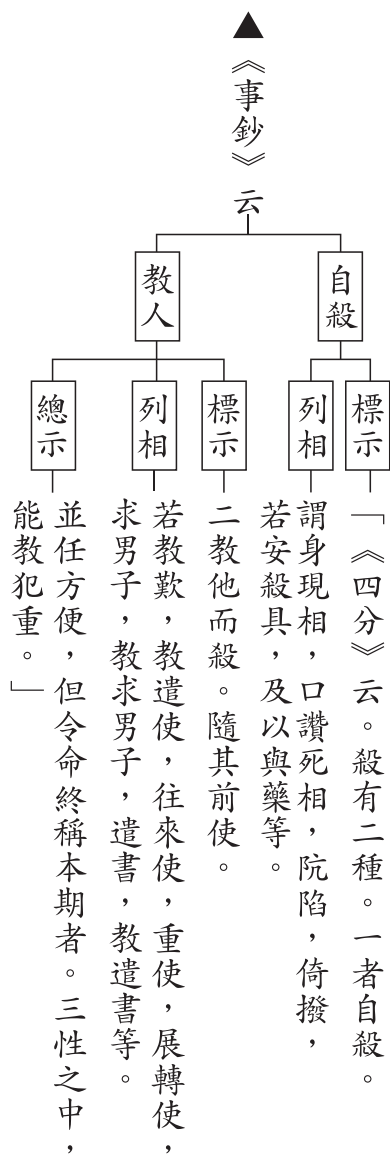 ▲《事鈔》云
自殺
標示
「《四分》云。殺有二種。一者自殺。
列相
謂身現相，口讚死相，阬陷，倚撥，
若安殺具，及以與藥等。
教人
標示
二教他而殺。隨其前使。
列相
若教歎，教遣使，往來使，重使，展轉使，
求男子，教求男子，遣書，教遣書等。
總示
並任方便，但令命終稱本期者。三性之中，
能教犯重。」